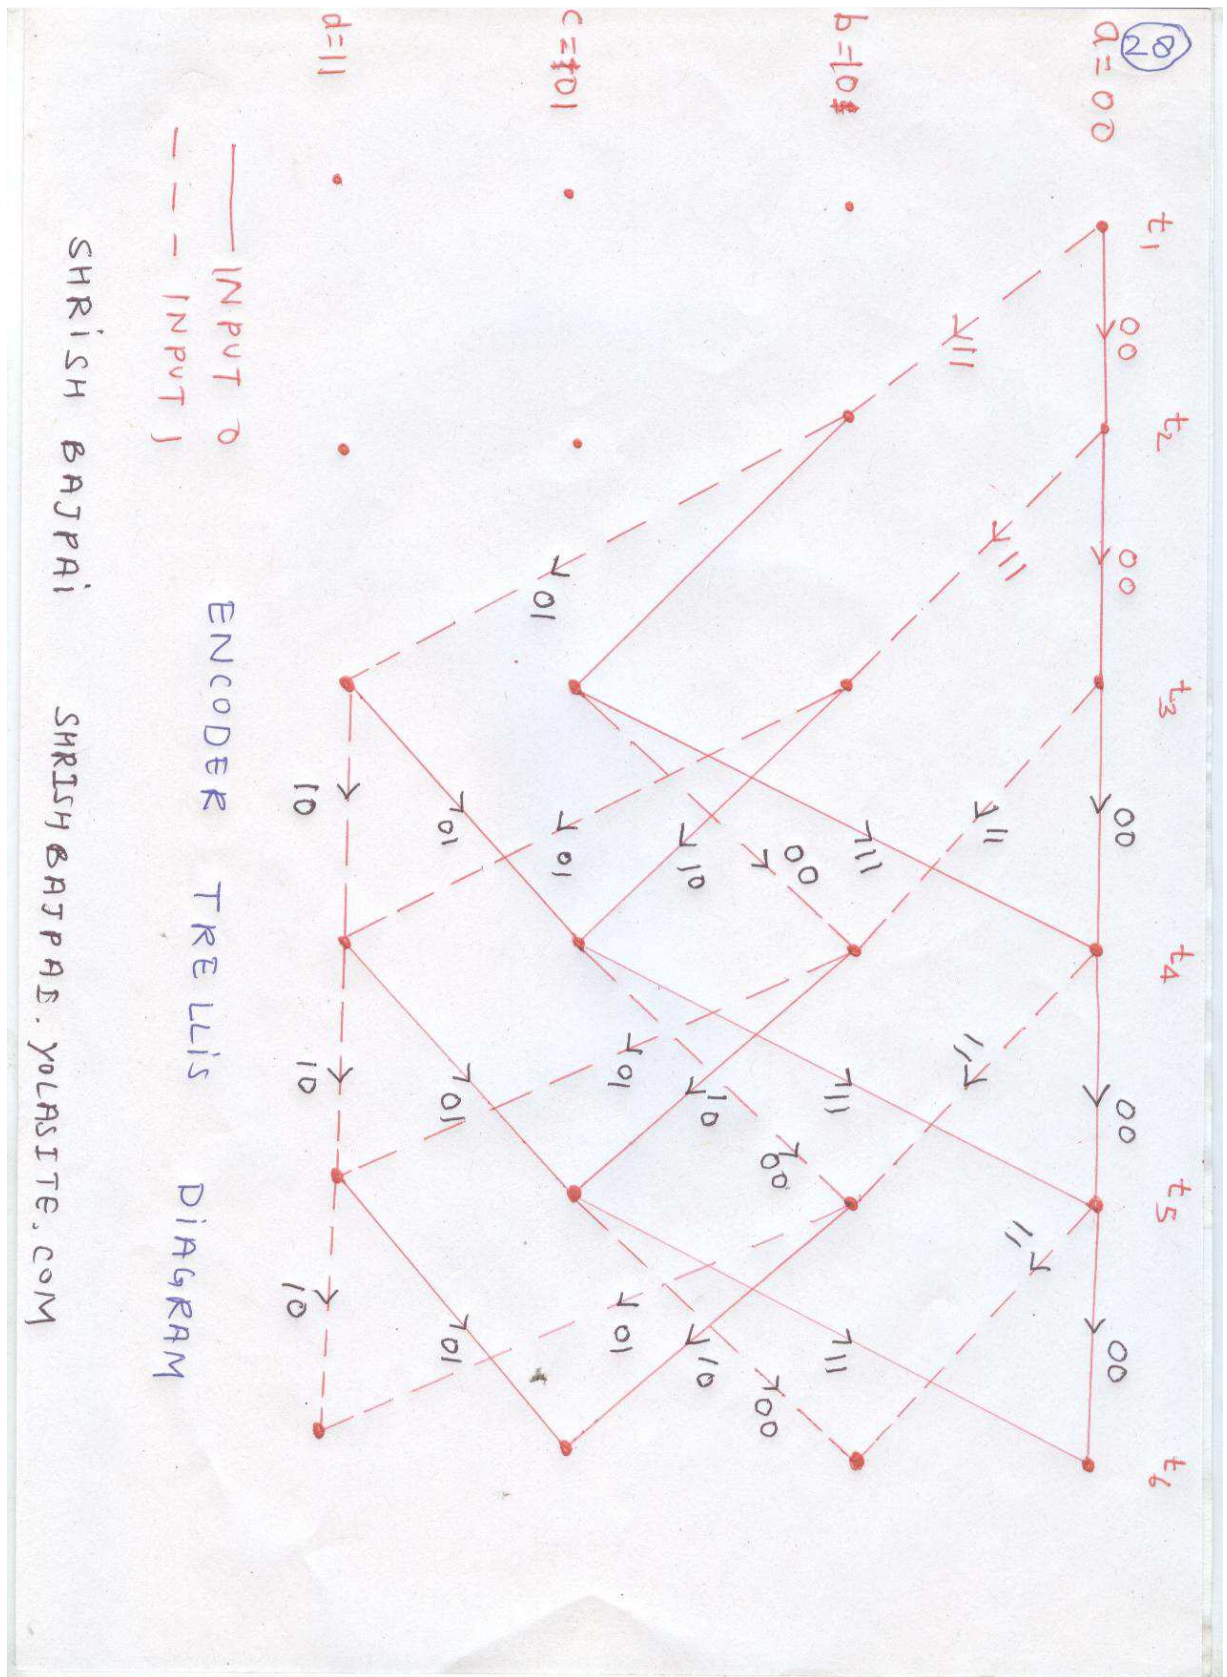 28
t1 t2 t3 t4 t5 t6
a=00
00 00 00 00 00
11 11 11 11 11
b=10
11 11 11
00 00 00
10 10 10
c=01
01 01 01 01
01 01 01
d=11
10 10 10
INPUT 0
INPUT 1
ENCODER TRELLiS DiAGRAM
SHRiSH BAJPAi SHRISHBAJPAI.YOLASITE.COM